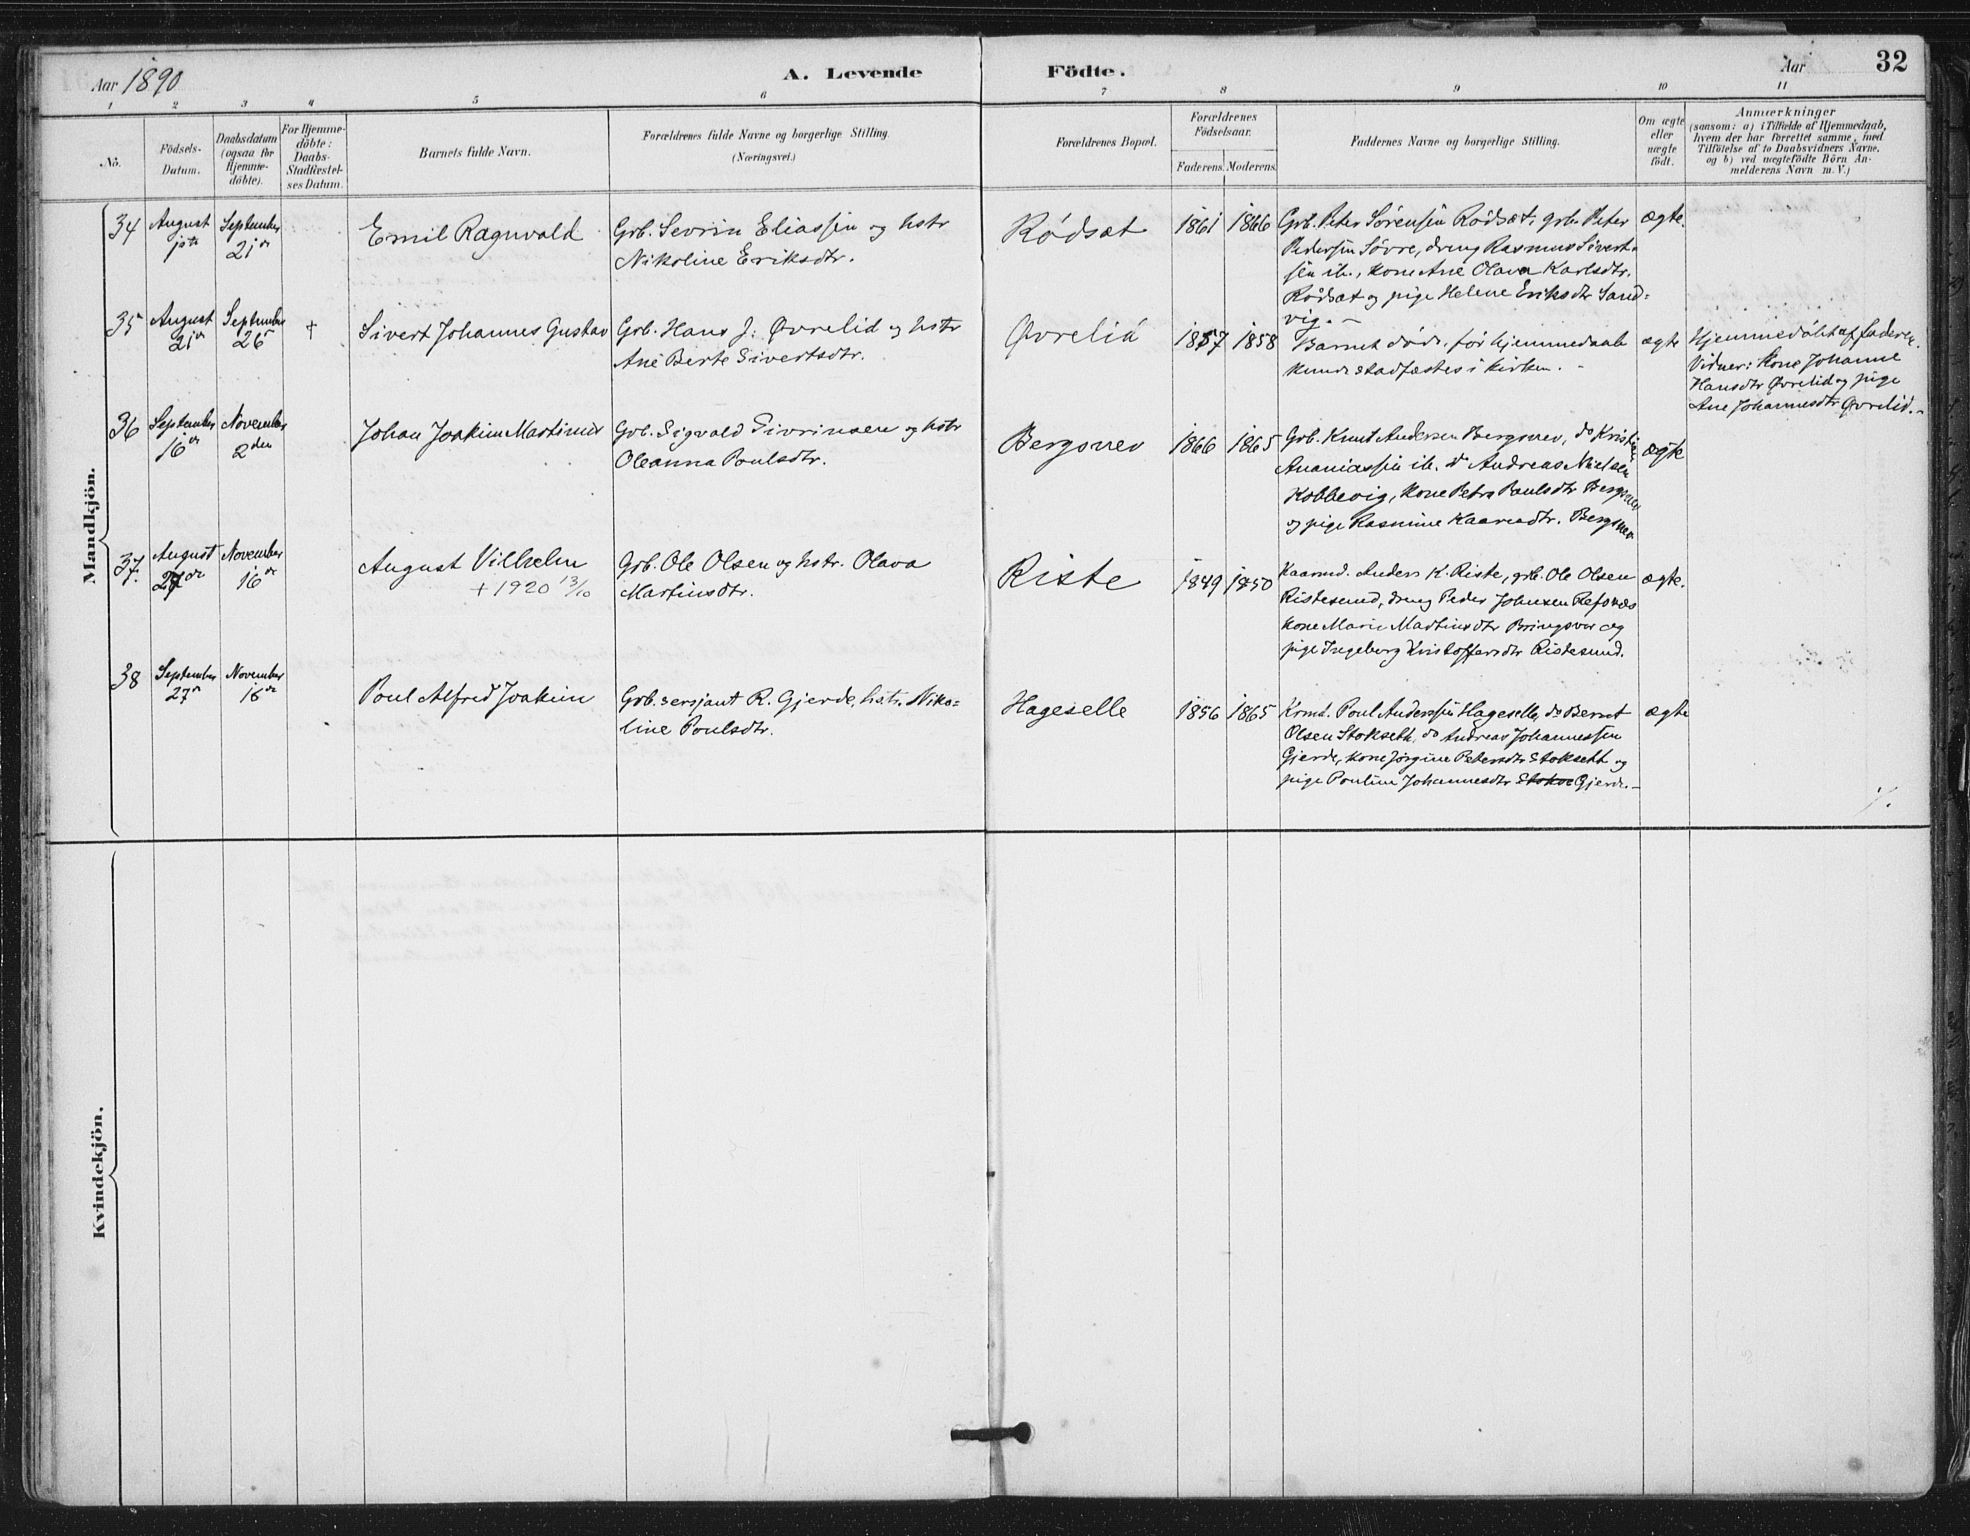 Aar 1890
A. Levende
Födte.
Aar
32
1
2
3
4
5
6
7
8
9
10
11
No.
Födsels-
Datum.
Daabsdatum
(ogsaa for
Hjemme-
döbte).
For Hjemme-
döbte:
Daabs-
Stadfæstel-
ses Datum.
Barnets fulde Navn.
Forældrenes fulde Navne og borgerlige Stilling.
(Næringsvei.)
Forældrenes Bopæl.
Forældrenes
Födselsaar.
Faderens.
Moderens.
Faddernes Navne og borgerlige Stilling.
Om ægte
eller
uægte
födt.
Anmærkninger
(saasom: a) i Tilfælde af Hjemmedaab,
hvem der har forrettet samme, med
Tilföielse af to Daabsvidners Navne,
og b) ved uægtefödte Börn An-
melderens Navn m. V.)
Mandkjön.
34
August
1ste
September
21de
Emil Ragnvald
Grb. Sevrin Eliassen og hstr
Nikoline Eriksdtr.
Rødsæt
1861
1866
Grb. Peter Sørensen Rødsæt, grb. Peter
Pedersen Søvre, dreng Rasmus Sivert-
sen ib., kone Ane Olava Karlsdtr.
Rødsæt og pige Helene Eriksdtr Sand-
vig. -
ægte.
35
August
21de
September
26
†
Sivert Johannes Gustav
Grb. Hans J. Øvrelid og hstr
Ane Berte Sivertsdtr.
Øvrelid
1857
1858
Barnet døde før hjemmedaab
kunde stadfæstes i kirken. -
ægte
Hjemmedøbt af faderen.
Vidner: Kone Johanne
Hansdtr Øvrelid og pige
Ane Johannesdtr Øvrelid. -
36
September
16de
November
2den
Johan Joakim Martinus
Grb. Sigvald Sivrinsen og hstr
Oleanna Poulsdtr.
Bergsnev
1866
1865
Grb. Knut Andersen Bergsnev, do Kristian
Ananiassen ib. do Andreas Nielsen
Kobbevig, kone Petra Poulsdtr Bergsnev
og pige Rasmine Kaaresdtr. Bergsnev
ægte
37.
August
27de
November
16de
August Vilhelm
+ 1920 13/10
Grb. Ole Olsen og hstr. Olava
Martinsdtr.
Riste
1849
1850
Kaarmd. Anders K. Riste, grb. Ole Olsen
Ristesund, dreng Peder Johnsen Refsnæs
kone Marie Martinsdtr Bringsvor og
pige Ingeborg Kristoffersdtr Ristesund.
ægte.
38
September
27de
November
16de
Poul Alfred Joakim
Grb. sersjant R. Gjerde, hstr. Niko-
line Poulsdtr.
Hageselle
1856
1865
Krmd. Poul Anderssen Hageselle, do Bernt
Olsen Stokseth, do Andreas Johannessen
Gjerde, kone Jørgine Petersdtr Stoksett og
pige Pouline Johannesdtr Stokse Gjerde. -
ægte
Kvindekjön.